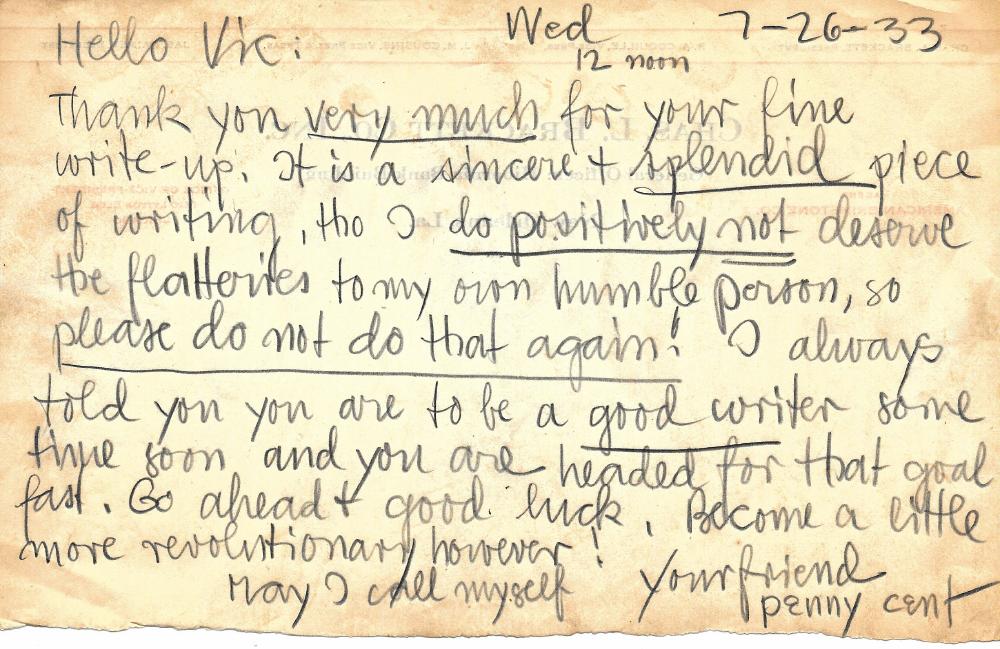 Wed 7-26-33
Hello Vic:
12 noon
Thank you very much for your fine
write-up. It is a sincere + splendid piece
of writing, tho I do positively not deserve
the flatteries to my own humble person, so
please do not do that again! I always
told you you are to be a good writer some
time soon and you are headed for that goal
fast. Go ahead + good luck. Become a little
more revolutionary however!
May I call myself your friend
penny cent